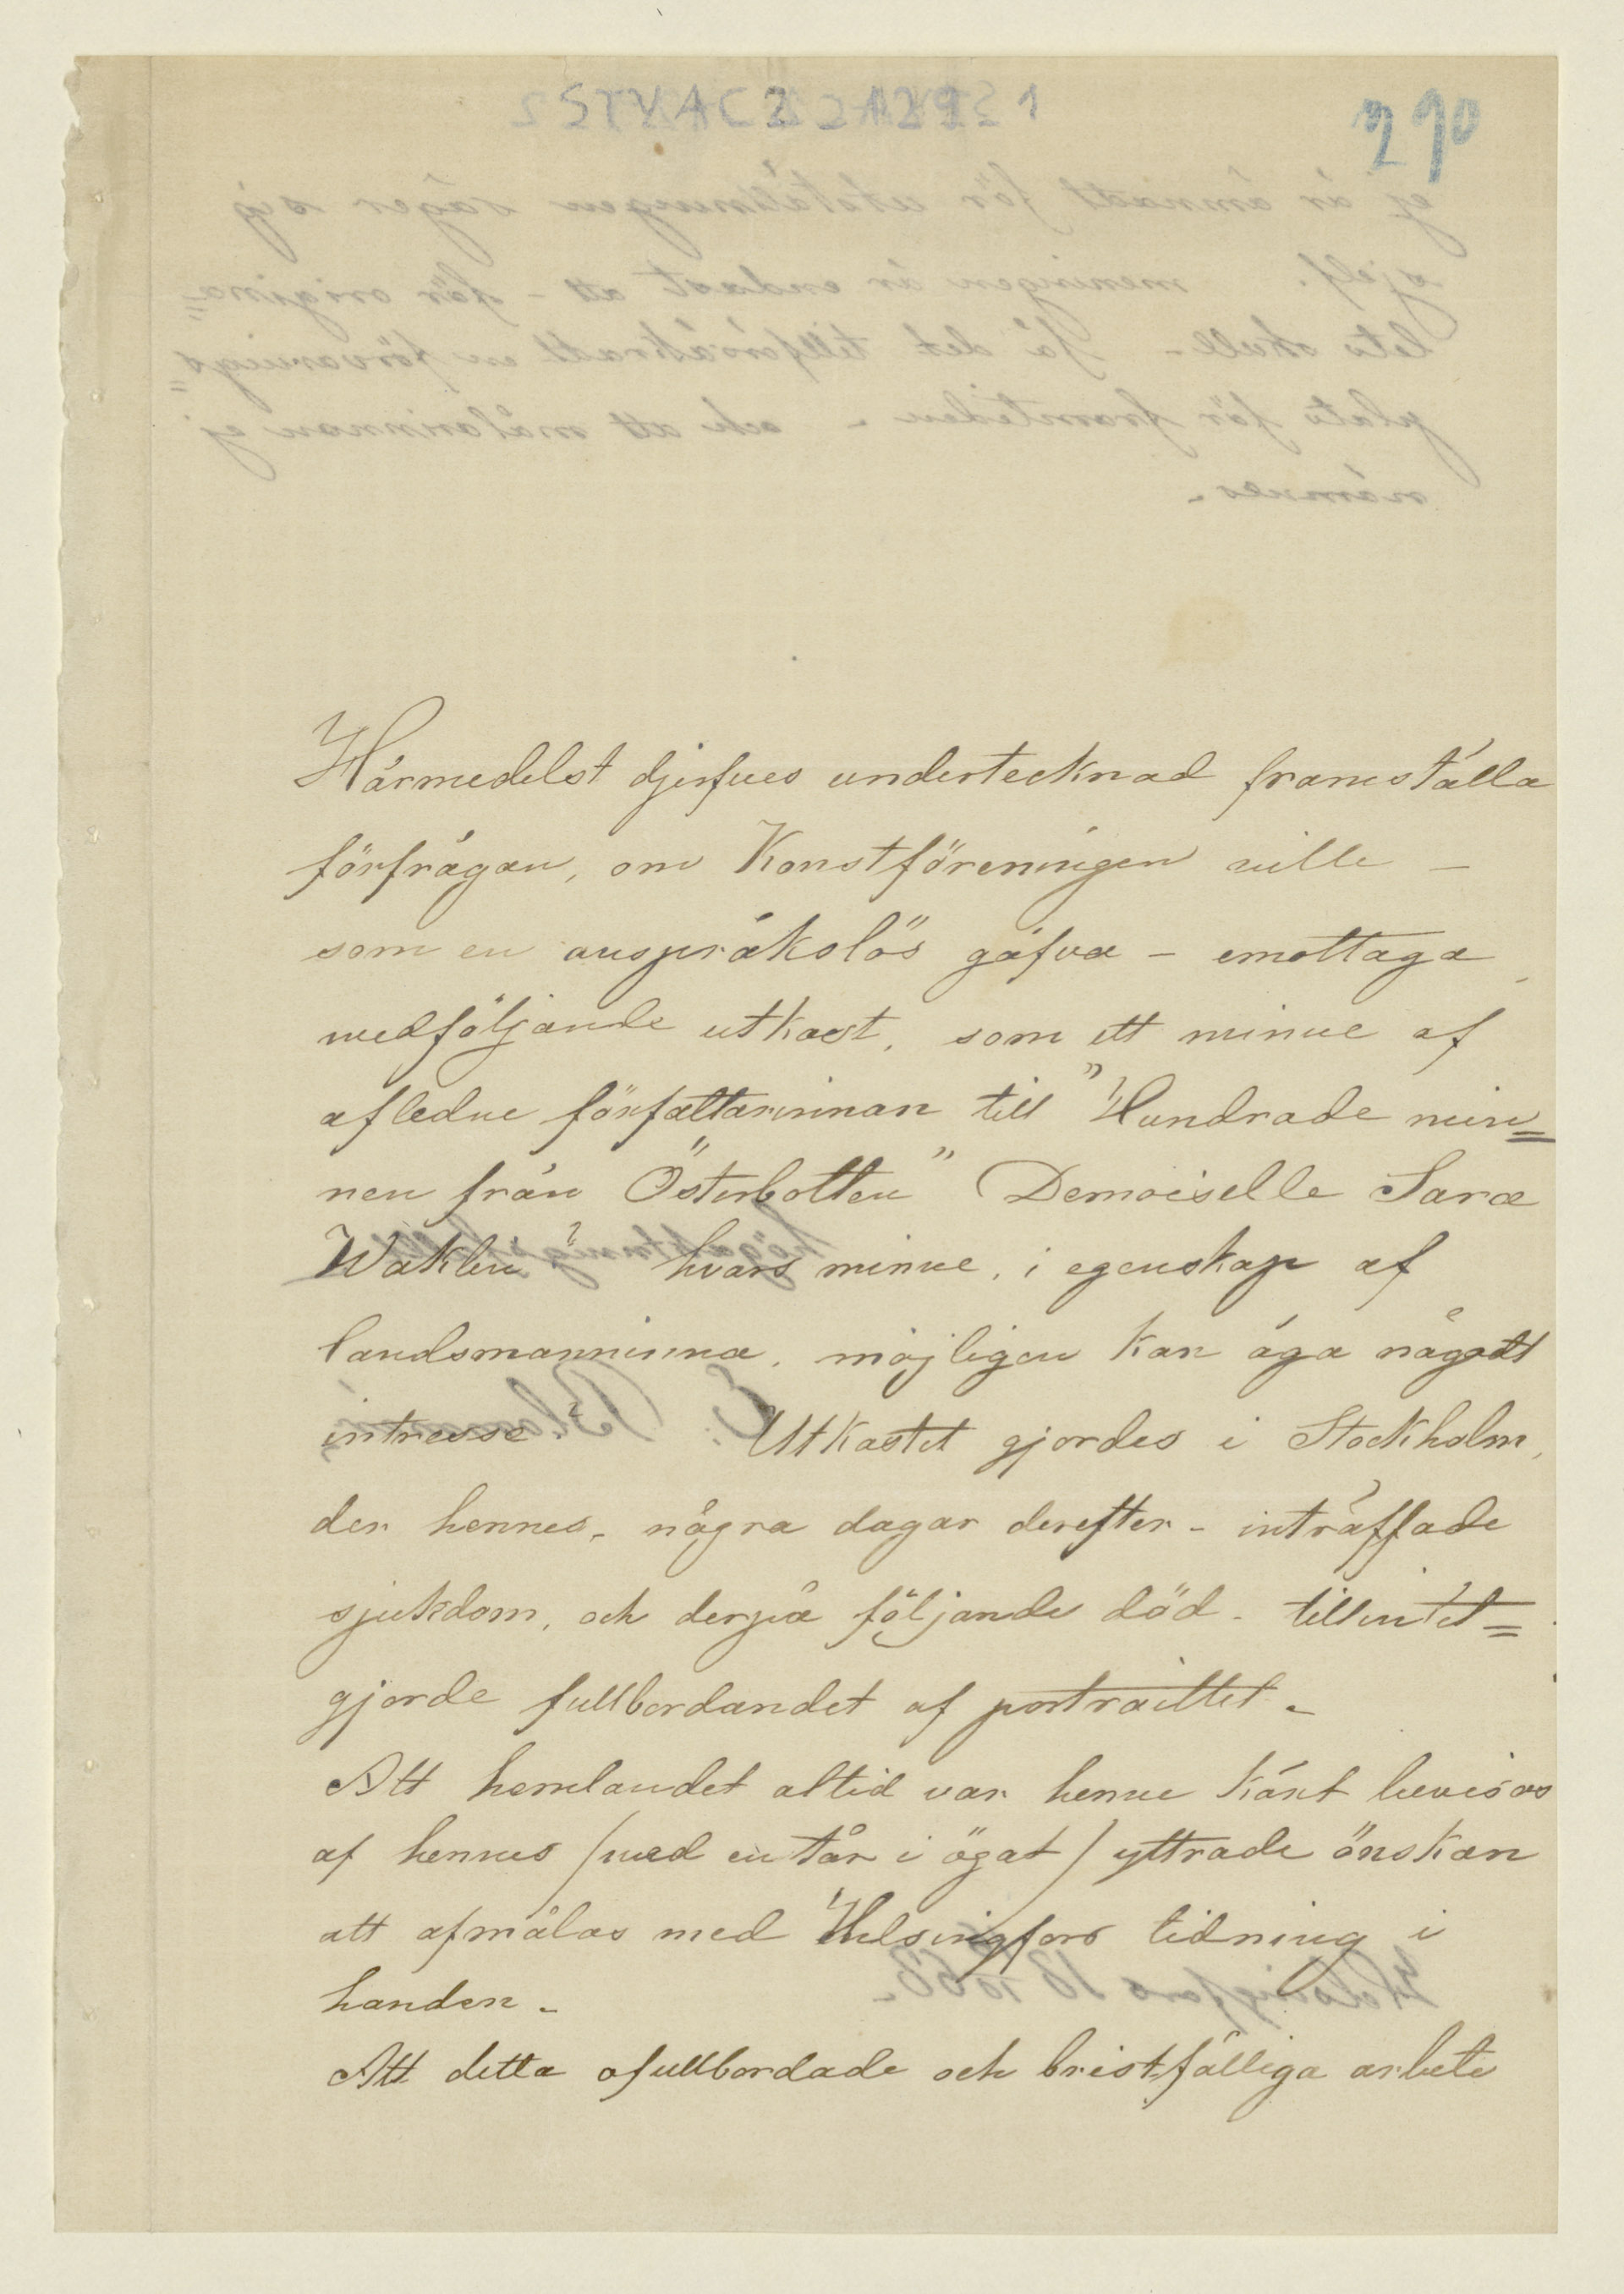 290
Härmedelst djerfves undertecknad framställa
förfrågan, om Konstföreningen ville –
som en anspråkslös gåfva – emottaga
medföljande utkast, som ett minne af
afledne författarinnan till "Hundrade min=
nen från Österbotten" Demoiselle Sara
Waklin hvars minne, i egenskap af
landsmaninna, möjligen kan äga någott
intresse. Utkastet gjordes i Stockholm,
der hennes, några dagar derefter – inträffade
sjukdom, och derpå följande död – tillintet=
gjorde fullbordandet af portraittet –
Att hemlandet altid var henne kärt bevisas
af hennes /med en tår i ögat/ yttrade önskan
att afmålas med Helsingfors tidning i
handen –
Att detta ofullbordade och bristfälliga arbete